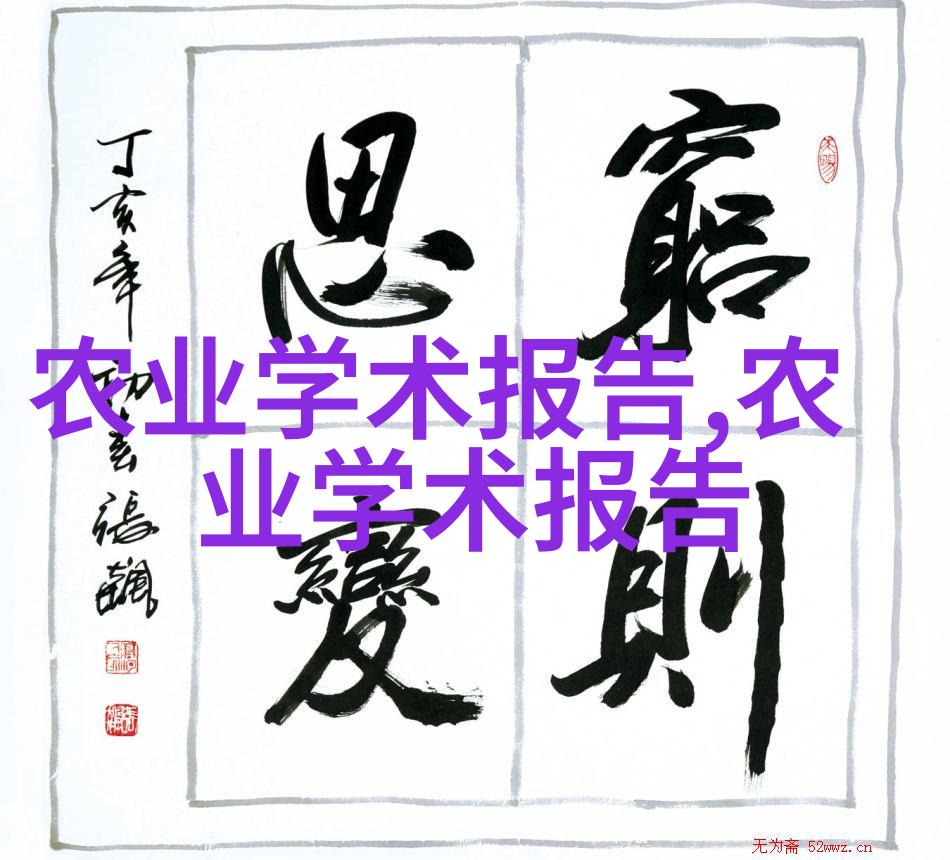 窮則
思變
丁亥年初春張飆
农业学术报告,农
业学术报告
无为斋 52wwz.cn